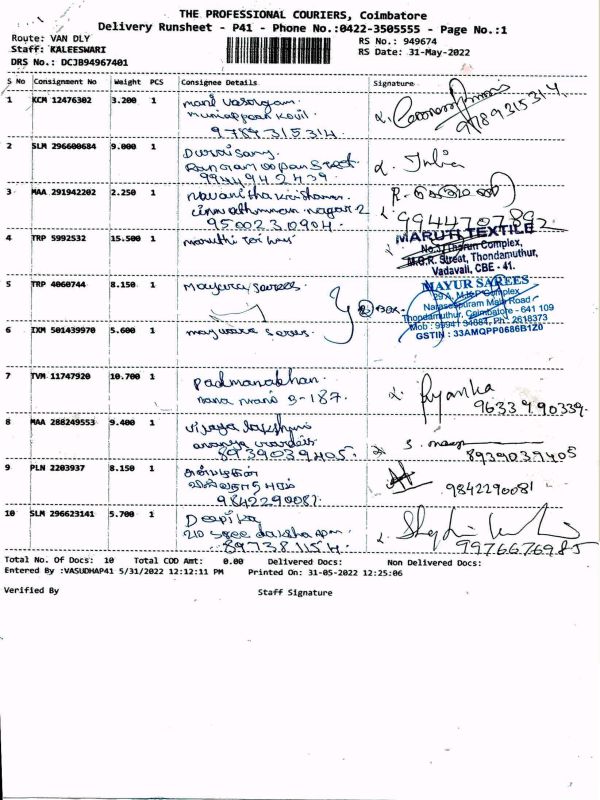 THE PROFESSIONAL COURIERS, Coimbatore
Delivery Runsheet - P41 - Phone No.:0422-3505555 - Page No.:1
Route: VAN DLY
RS No.: 949674
Staff: KALEESWARI
RS Date: 31-May-2022
DRS No.: DCJB94967401
S No Consignment No Weight PCS Consignee Details Signature
1 KCM 12476302 3.200 1
9789315314
9789315314
2 SLM 296600684 9.000 1 Duraisamy
9944942439
3 MAA 291942202 2.250 1
nagar-2
9500230904
9944707892
4 TRP 5992532 15.500 1
MARUTI TEXTILE
No.3, Tharun Complex,
M.G.R. Street, Thondamuthur,
Vadavalli, CBE - 41.
5 TRP 4060744 8.150 1 Mayura Sarees
2 Box
MAYUR SAREES
Naraseepuram Main Road
Thondamuthur, Coimbatore - 641 109
GSTIN : 33AMQPP0686B1Z0
6 IXM 501439970 5.600 1
7 TVM 11747920 10.700 1 Padmanabhan
nana nani B-187
Priyanka
9633490339
8 MAA 288249553 9.400 1
8939039405
8939039405
9 PLN 2203937 8.150 1 அன்பழகன்
9842290081
9842290081
10 SLM 296623141 5.700 1 Deepika
210 Sree daksha apm
8973811154
9976676985
Total No. Of Docs: 10 Total COD Amt: 0.00 Delivered Docs: Non Delivered Docs:
Entered By :VASUDHAP41 5/31/2022 12:12:11 PM Printed On: 31-05-2022 12:25:06
Verified By Staff Signature